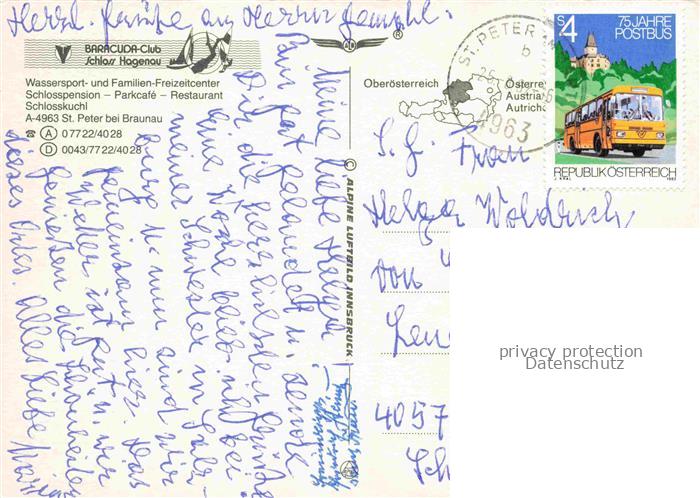 Herzl. Grüße an Herrn Gemahl.
BARACUDA-Club
Schloss Hagenau
Wassersport- und Familien-Freizeitcenter
Schlosspension – Parkcafé – Restaurant
Schlosskuchl
A-4963 St. Peter bei Braunau
☎ Ⓐ 0 77 22/40 28
Ⓓ 0043/7722/40 28
Meine liebe Helga
Bin gut gelandet u. sende
Dir die herzlichsten Grüße
Eine Woche blieb ich bei
meiner Schwester in Salz-
burg u. nun sind wir
gemeinsam hier. Das
Wetter ist gut u. wir
genießen die Schönheiten
dieses Ortes. Alles Liebe
© ALPINE LUFTBILD INNSBRUCK
®
Oberösterreich
Österre
Austria
Autrich
ST. PETER
b
4963
S 4
75 JAHRE
POSTBUS
REPUBLIK ÖSTERREICH
1982
S. g. Frau
Helga Woldrich
von
4057
privacy protection
Datenschutz